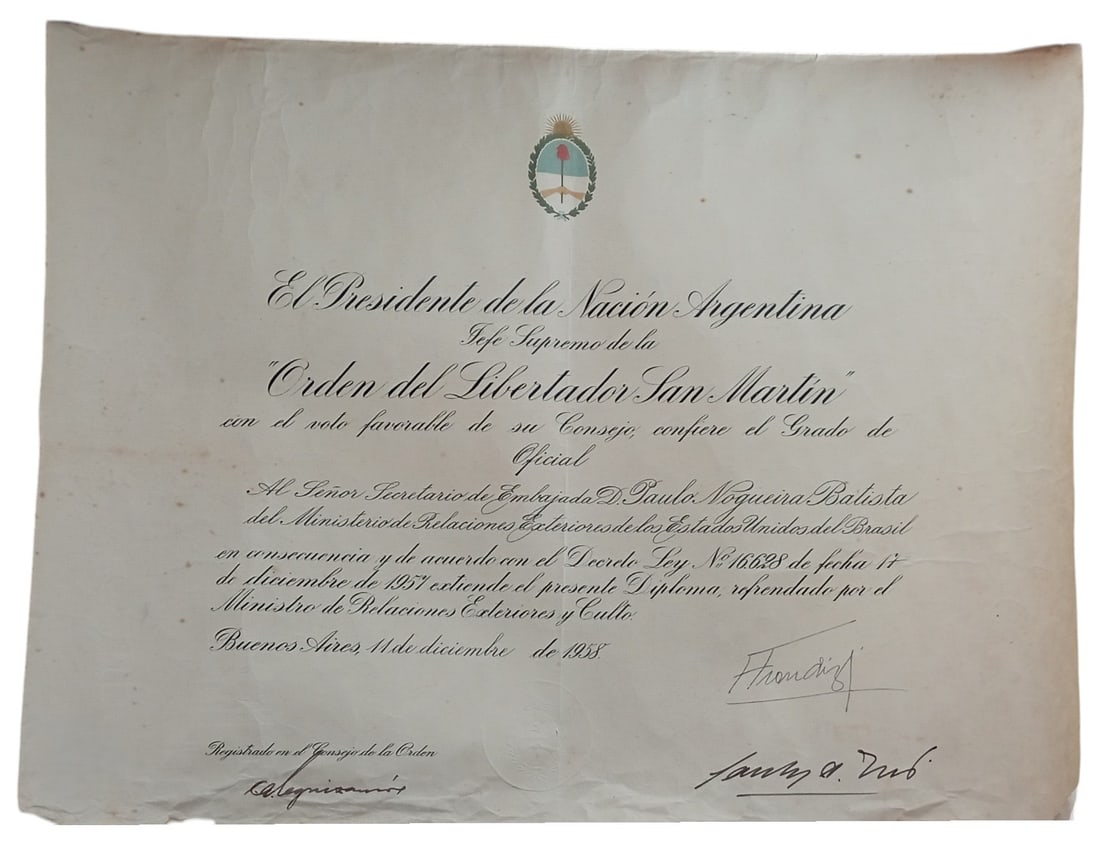 El Presidente de la Nación Argentina
Jefe Supremo de la
"Orden del Libertador San Martín"
con el voto favorable de su Consejo, confiere el Grado de
Oficial
Al Señor Secretario de Embajada D. Paulo Nogueira Batista
del Ministerio de Relaciones Exteriores de los Estados Unidos del Brasil
en consecuencia y de acuerdo con el Decreto Ley Nº 16.628 de fecha 17
de diciembre de 1957 extiende el presente Diploma, refrendado por el
Ministro de Relaciones Exteriores y Culto.
Buenos Aires, 11 de diciembre de 1958.
Frondizi
Registrado en el Consejo de la Orden